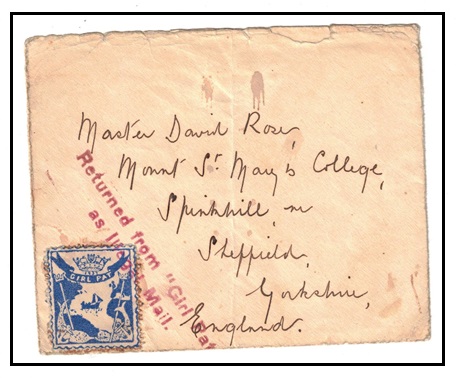 Master David Rose,
Mount St. Mary's College,
Spinkhill nr
Sheffield,
Yorkshire,
England.
Returned from "Girl Pat
as Mail.
GIRL PAT